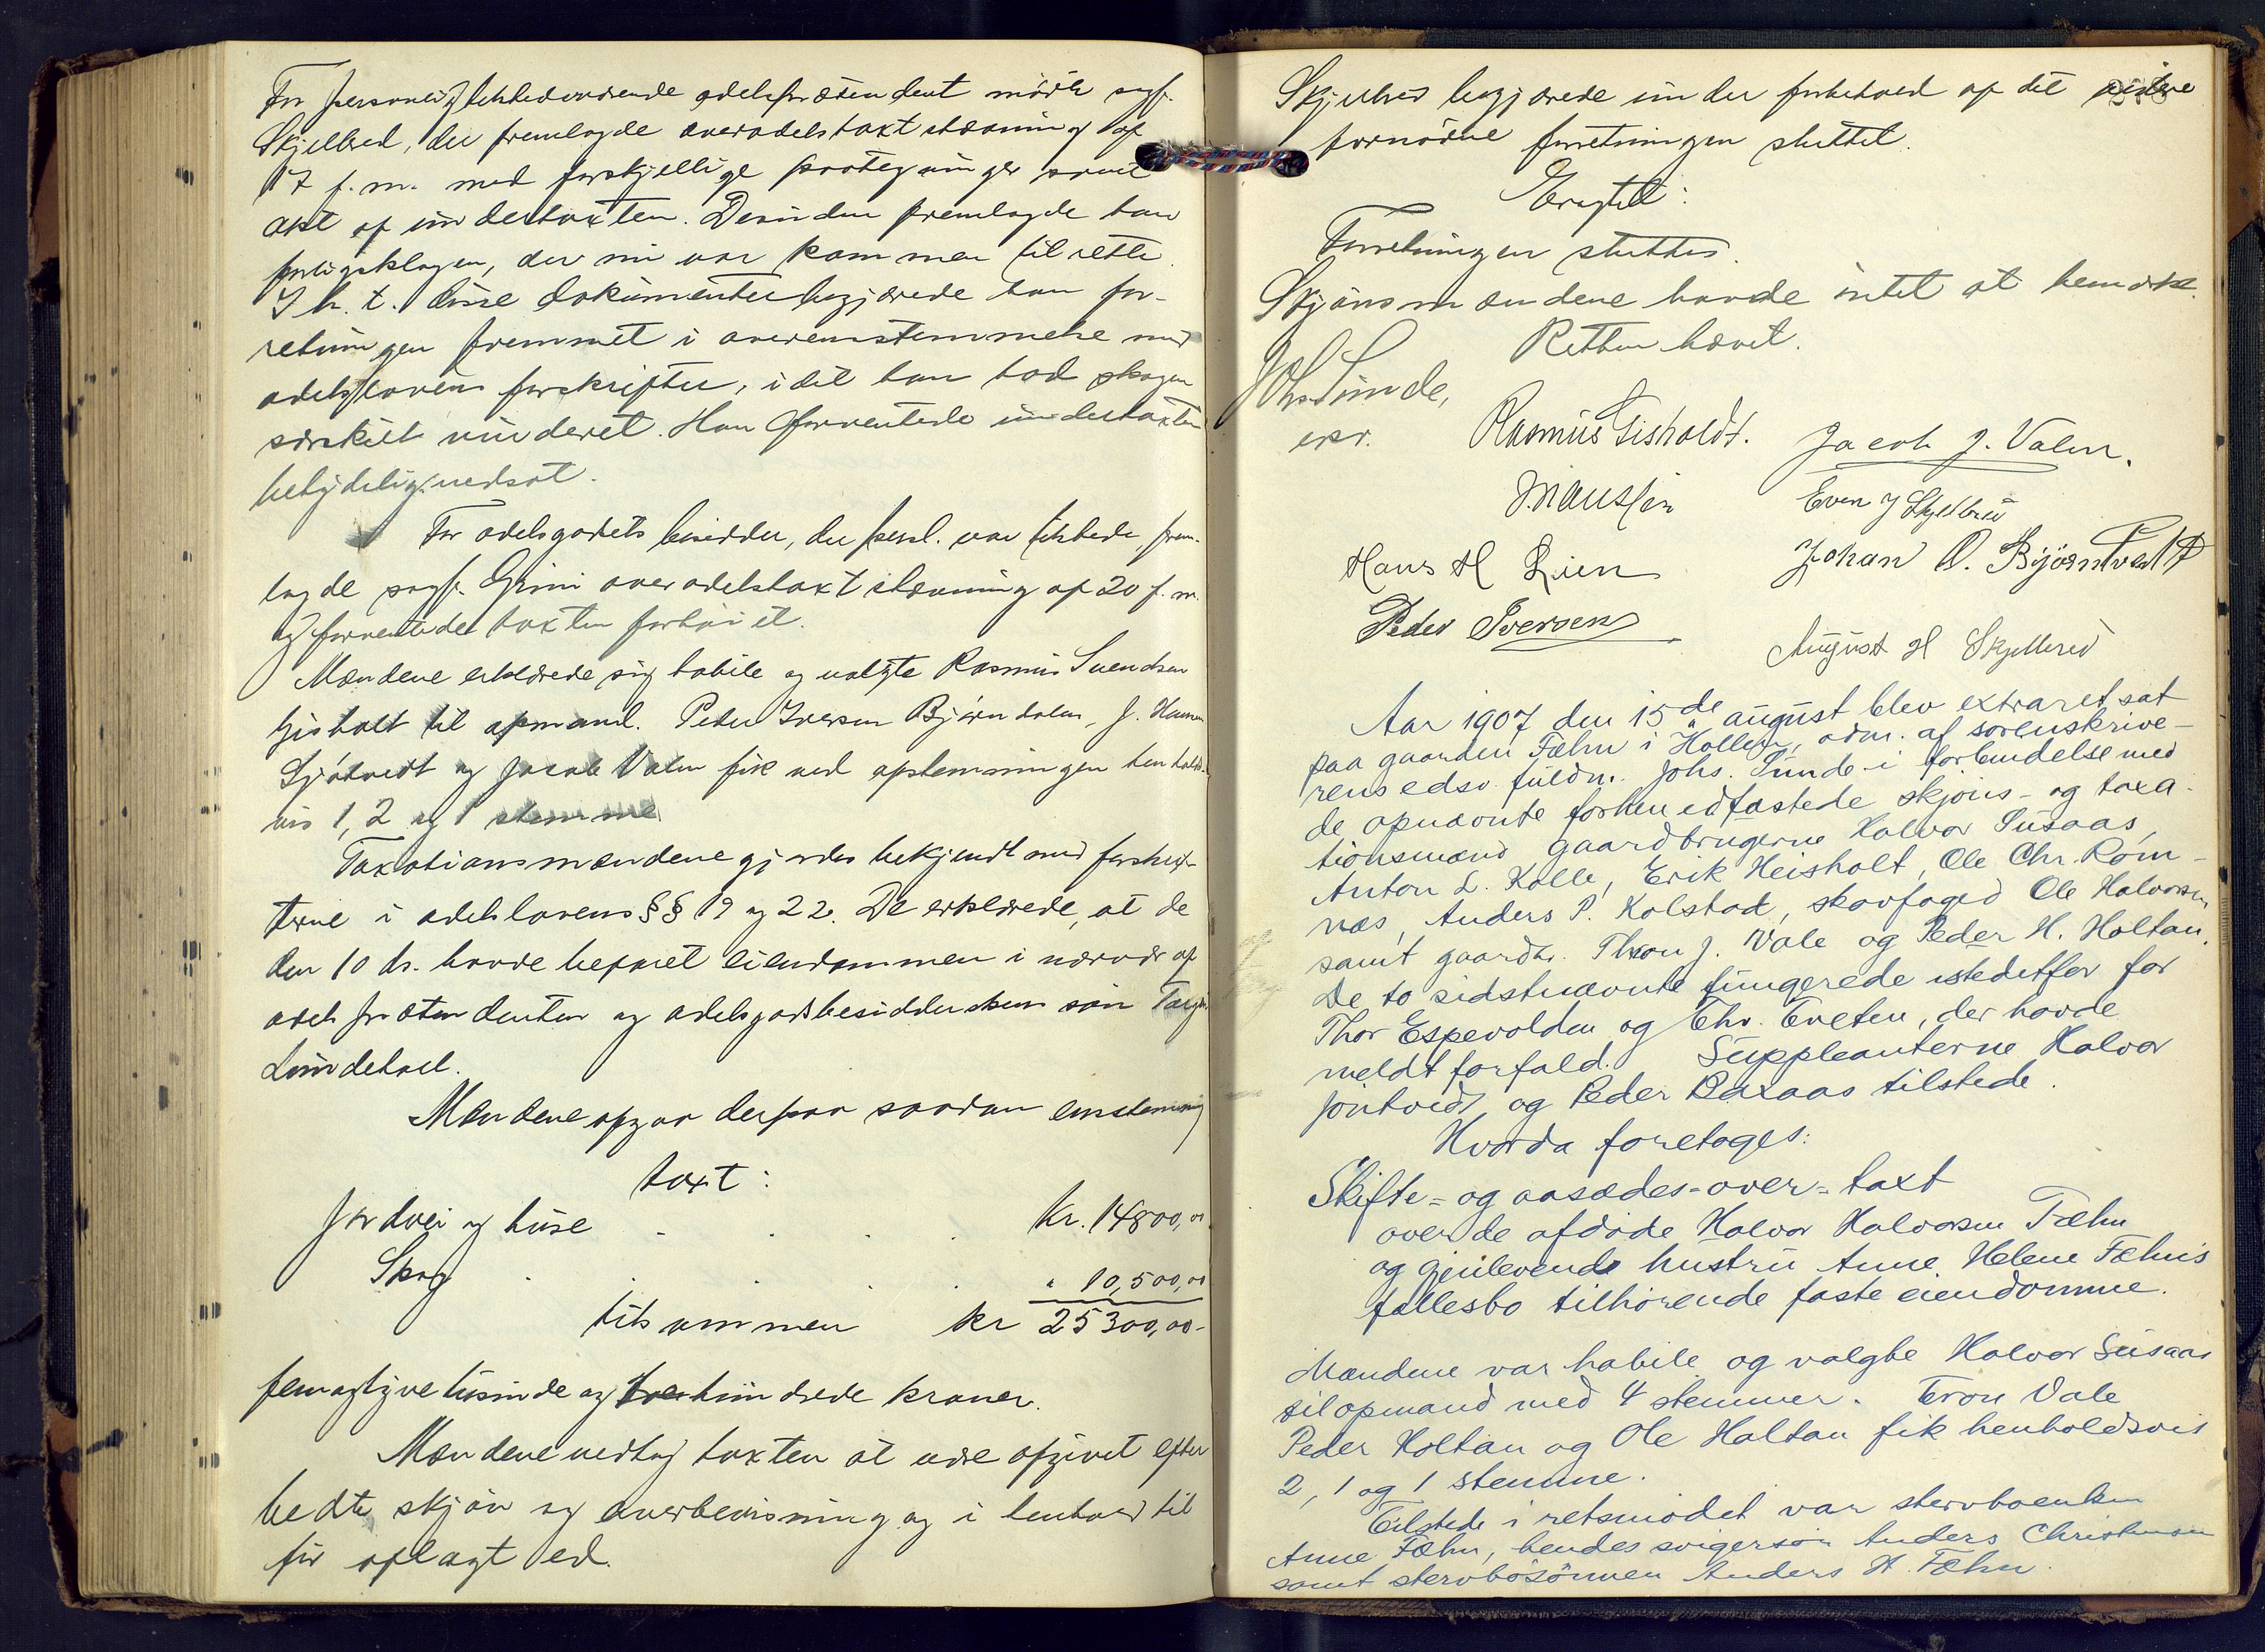 For personlig tilstedeværende odelsprætendent mødte sagf.
Skjelbred, der fremlagde overodelstaxtstævning af
17 f. m. med forskjellige paategninger samt
akt af undertaxten. Desuden fremlagde han
forligsklagen, der nu var kommen tilrette.
I h. t. disse dokumenter begjærede han for-
retningen fremmet i overensstemmelse med
odelslovens forskrifter, idet han bad skogen
særskilt vurderet. Han forventede undertaxten
betydelig nedsat.
For odelsgodets besidder, der persl. var tilstede, frem-
lagde sagf. Grini overodelstaxtstævning af 20 f. m.
og forventede taxten forhøiet.
Mændene erklærede sig habile og valgte Rasmus Svendsen
Gisholt til opmand. Peder Iversen Bjørndalen, J. Hansen
og Jacob Valen fik ved afstemningen henholds-
vis 1, 2 og 1 stemme
Taxationsmændene gjordes bekjendt med forskrif-
terne i odelslovens §§ 19 og 22. De erklærede, at de
den 10 ds. havde befaret eiendommen i nærvær af
odelsprætendenten og odelsgodsbesidderskens søn
Mændene afgav derpaa saadan enstemmig
taxt:
Jordvei og huse . . . . Kr. 14800,00
Skog . . . . " 10,500,00
tilsammen kr 25300,00-
femogtyvetusinde og trehundrede kroner.
Mændene vedtog taxten at være afgivet efter
bedste skjøn og overbevisning og i henhold til
før aflagt ed.
Skjelbred begjærede under forbehold af det videre
fornødne forretningen sluttet.
Eragtet:
Forretningen sluttes.
Skjønsmændene havde intet at bemærke.
Retten hævet.
Johs Sunde,
Rasmus Gisholdt. Jacob J. Valen.
J. Hansen Even J Skjelbred
Hans H Lien Johan O. Bjørntvedt
Peder Iversen
August H Skjelbred
Aar 1907 den 15de august blev extraret sat
paa gaarden Fæhn i Hollen, adm. af sorenskrive-
rens edsv. fuldm. Johs. Sunde i forbindelse med
de opnævnte forhen edfæstede skjøns- og taxa-
tionsmænd gaardbrugerne Halvor Susaas,
Anton L. Kolle, Erik Heisholt, Ole Chr. Rom-
næs, Anders P. Kolstad, skovfoged Ole Halvorsen
samt gaardbr. Thron J. Vale og Peder H. Holtan.
De to sidstnævnte fungerede istedetfor for
Thor Espevolden og Chr. Tveten, der havde
meldt forfald. Suppleanterne Halvor
Jøntvedt og Peder Baxaas tilstede.
Hvorda foretoges:
Skifte- og aasædes-over-taxt
over de afdøde Halvor Halvorsen Fæhn
og gjenlevende hustru Anne Helene Fæhns
fællesbo tilhørende faste eiendomme.
Mændene var habile og valgte Halvor Susaas
til opmand med 4 stemmer. Tron Vale
Peder Holtan og Ole Haltan fik henholdsvis
2, 1 og 1 stemme.
Tilstede i retsmødet var stervboenken
Anne Fæhn, hendes svigersøn Anders Christensen
samt stervbosønnen Anders H. Fæhn.